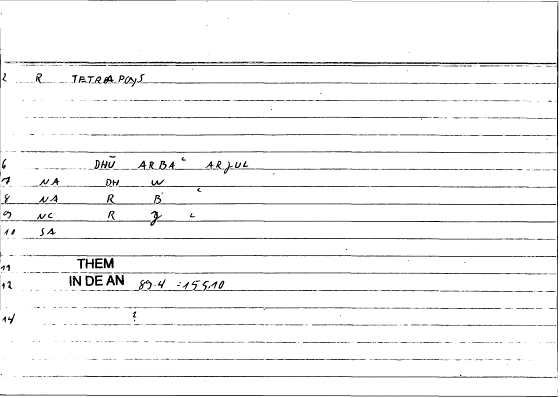 2 R TETRAPOYS
6 DHŪ ARBAʿ ARJUL
7 NA DH W
8 NA R B ʿ
9 NC R J L
10 SA
11 THEM
12 IN DE AN 89.4 =15510
14 ?